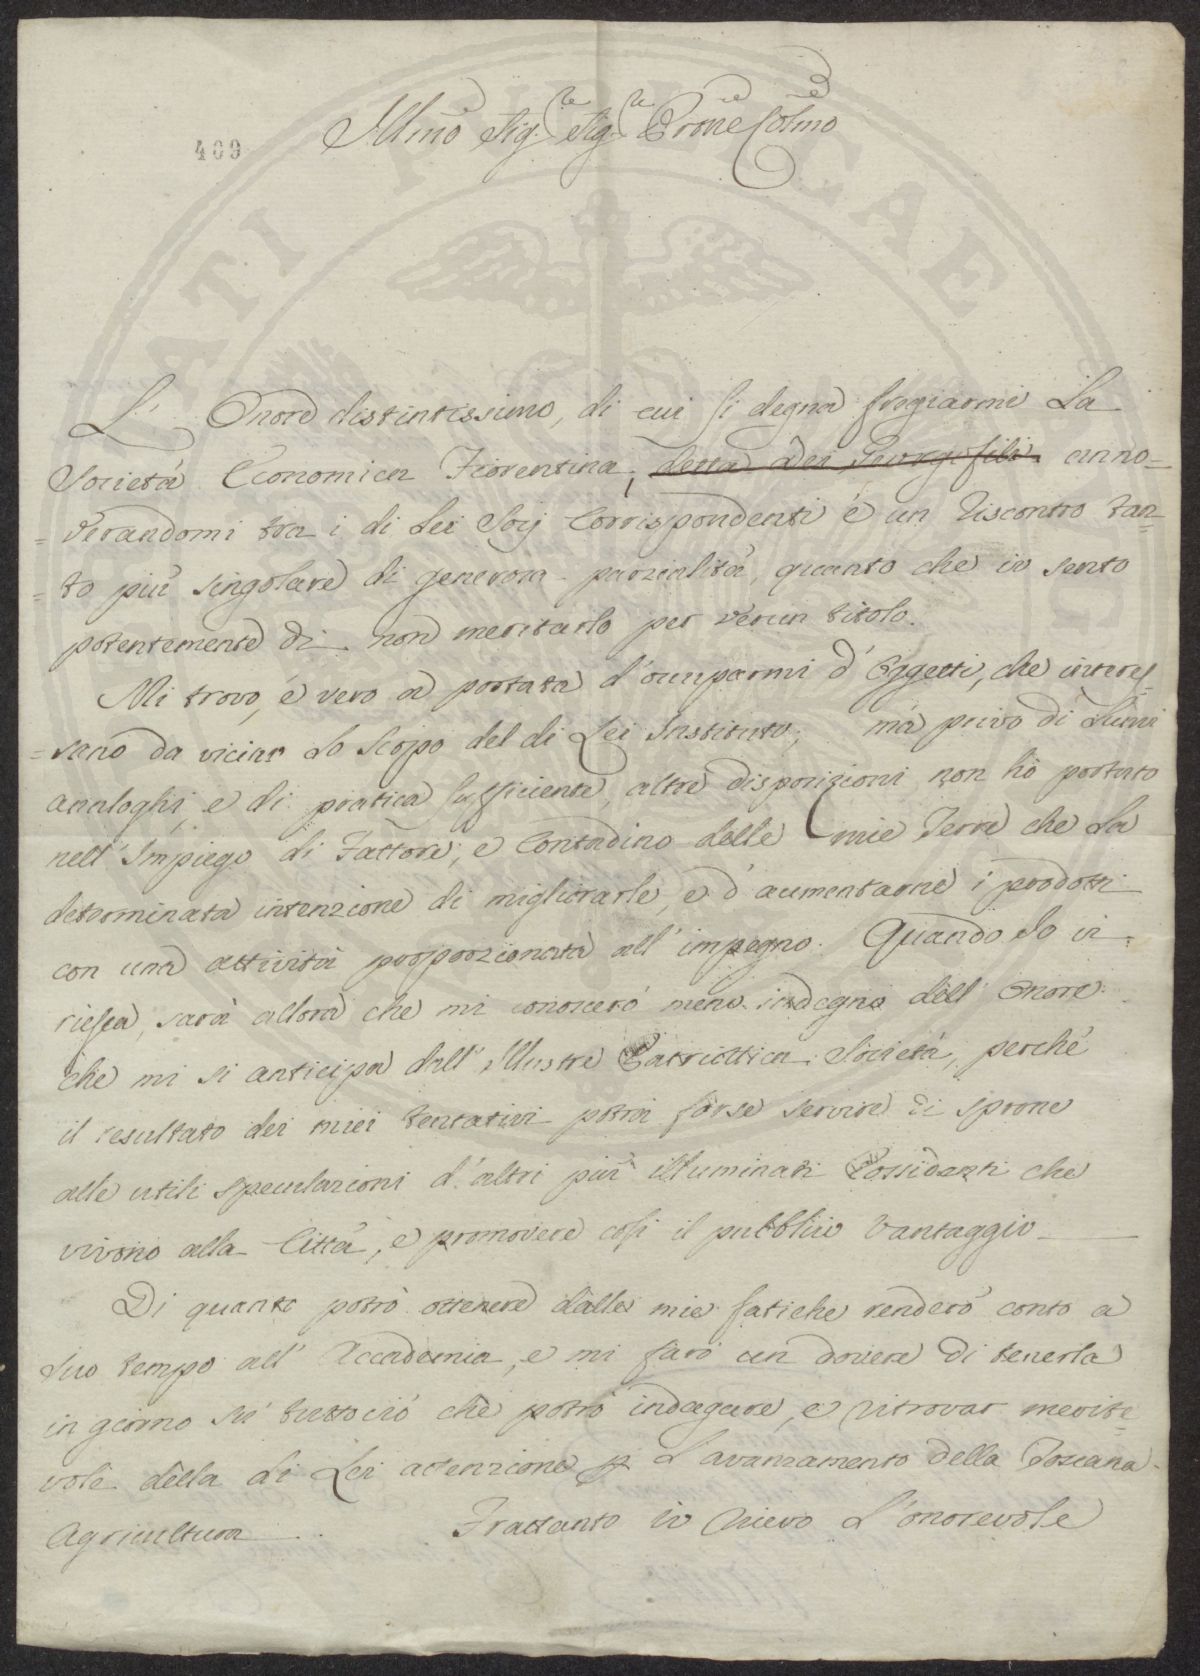 409
Illmo Sig.re Sig.re Prone Colmo
L' Onore distintissimo, di cui si degna fregiarmi La
Società Economica Fiorentina, detta dei Georgofili anno=
=verandomi tra i di Lei Socj Corrispondenti è un riscontro tan=
=to più singolare di generosa parzialità, quanto che io sento
potentemente di non meritarlo per verun titolo.
Mi trovo, è vero a portata d'occuparmi d'Oggetti, che interes=
=sano da vicino Lo Scopo del di Lei Instituto, mà privo di Lumi
analoghi, e di pratica sufficiente, altre disposizioni non hò portato
nell' Impiego di Fattore, e Contadino delle mie Terre che La
determinata intenzione di migliorarle, e d'aumentarne i prodotti
con una attività proporzionata all' impegno. Quando Io vi
riesca, sarà allora che mi conoscerò meno indegno dell' Onore
che mi si anticipa dall' Illustre Patriottica Società, perchè
il resultato dei miei tentativi potrà forse servire di sprone
alle utili speculazioni d'altri più illuminati Possidenti che
vivono alla Città, e promovere così il pubblico Vantaggio
Di quanto potrò ottenere dalle mie fatiche renderò conto a
suo tempo all' Accademia, e mi farò un dovere di tenerla
in giorno sù tuttociò che potrò indagare, e ritrovar merite=
vole della di Lei attenzione p L'avanzamento della Toscana
Agricultura Frattanto io ricevo L'onorevole